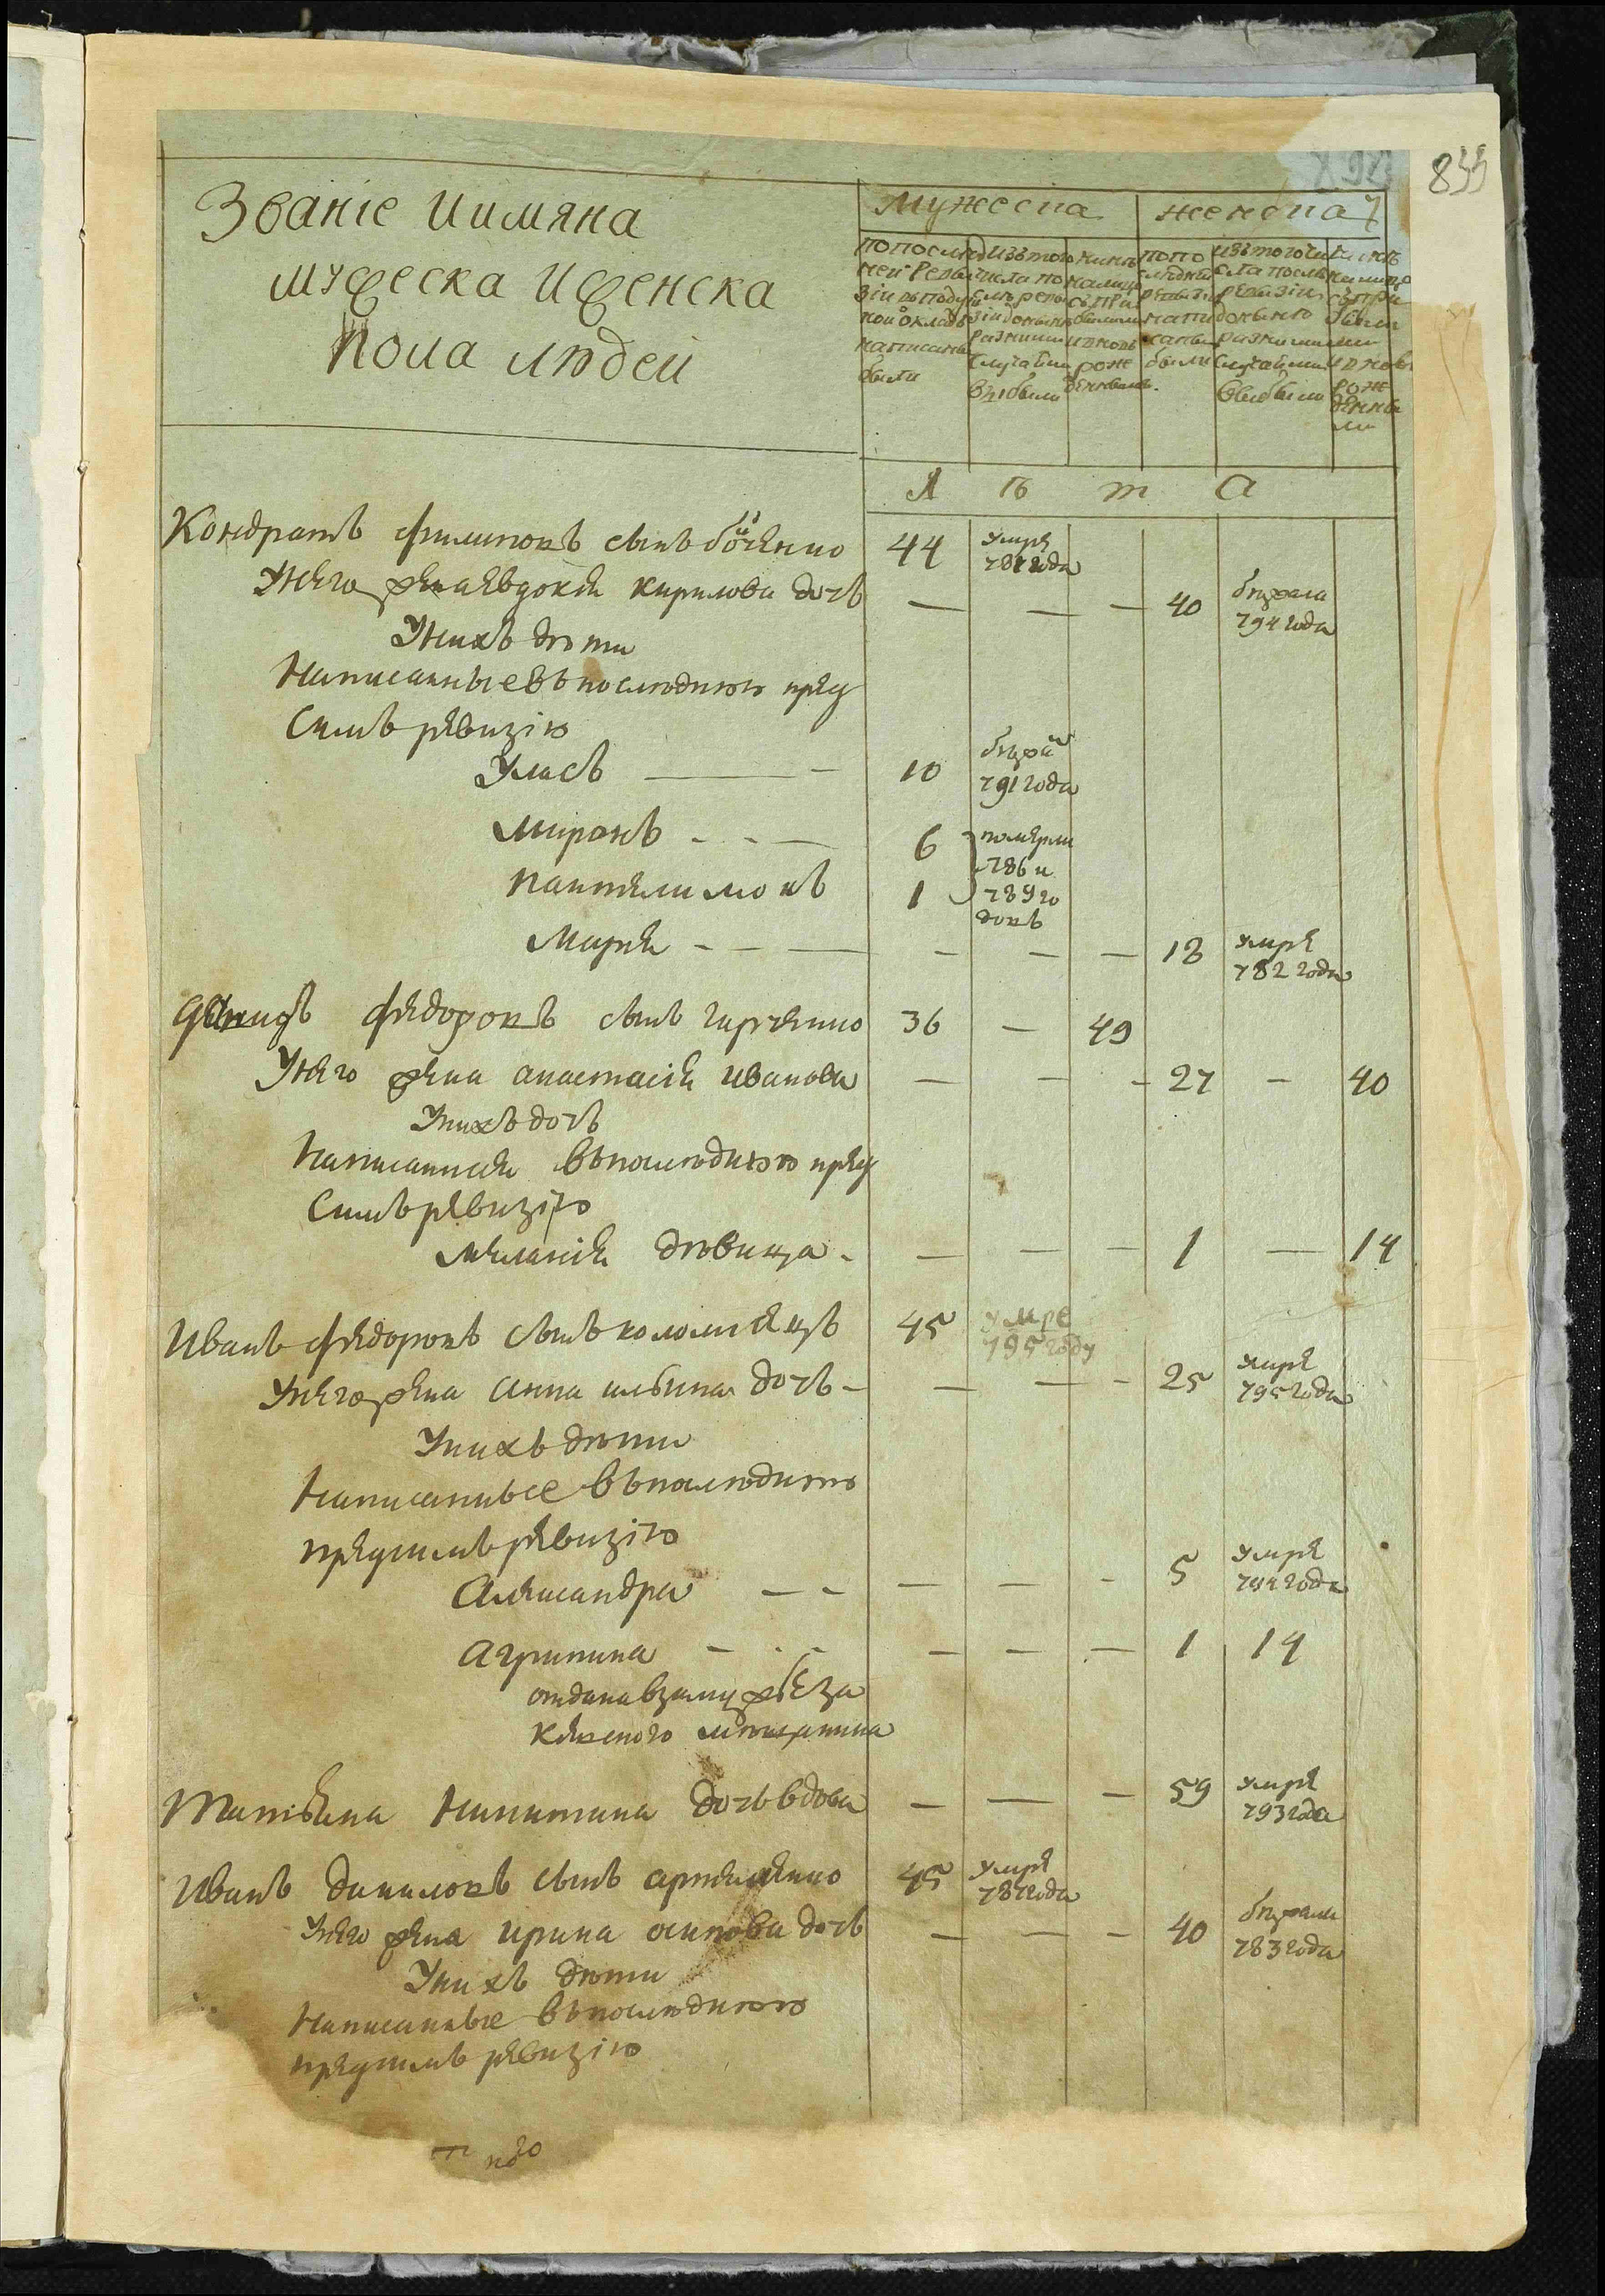 835
Званіе иимяна
мужеска иженска
пола людей
Мужеска
женска
попослед
ней реви
зіи въподуш
ной окладъ
написаны
были
изътого
числа по
слѣ реви
зіи донынѣ
разными
случаями
выбыли
нынѣ
налицо
съпри
былыми
ивновь
рож
денными
попо
слѣдней
ревизіи
напи
саны
были
изътого чи
сла послѣ
ревизіи
донынѣ
разными
случаями
выбыли
нынѣ
налицо
съпри
были
ми
ивновь
рож
денны
ми
Л ѣ т а
Кондратъ филиповъ сынъ 44 умре 787 года
Унего жена евдокия кирилова дочь — — — 40 бѣжала 794 года
Унихъ дѣти
Написанные въ послѣднюю пред
симъ ревизію
Уласъ — 10 бѣжал 791 года
Миронъ — 6 померли 786 и
Пантелимонъ 1 789 го
довъ
Мария — — — — 18 умре 782 года
федоровъ сынъ 36 — 49
Унего жена анастасия иванова — — — 27 — 40
Унихъ дочь
Написанная въпослѣднюю пред
симъ ревизію
Мелания дѣвица — — — 1 — 14
Иванъ федоровъ сынъ коломиецъ 45 умре 795 году
Унего жена анна ильина дочь — — — 25 умре 795 года
Унихъ дѣти
Написанные въпослѣднюю
предсимъ ревизію
Александра — — — 5 умре 794 года
Агрипина — — — 1 14
отдана взамуж за
мѣщанина
Татияна Никитина дочь вдова — — — 59 умре 793 года
Иванъ даниловъ сынъ 45 умре 787 года
Унего жена ирина осипова дочь — — — 40 бѣжала 783 года
Унихъ дѣти
Написанные въпослѣднюю
предсимъ ревизію